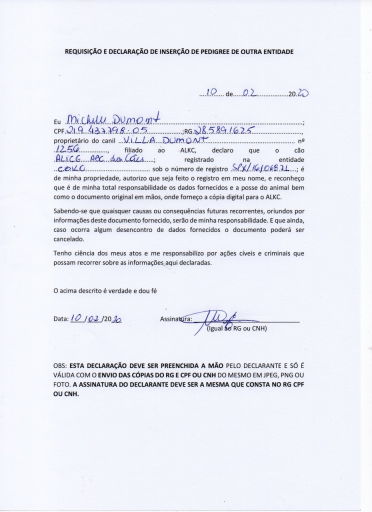 REQUISIÇÃO E DECLARAÇÃO DE INSERÇÃO DE PEDIGREE DE OUTRA ENTIDADE
10 de 02 2020
Eu Michele Dumont,
CPF: 219.437.798-05;RG:285891625,
proprietário do canil VILLA DUMONT nº
1256, filiado ao ALKC, declaro que o cão
ALICE ABC dos Cães; registrado na entidade
sob o número de registro; é
de minha propriedade, autorizo que seja feito o registro em meu nome, e reconheço
que é de minha total responsabilidade os dados fornecidos e a posse do animal bem
como o documento original em mãos, onde forneço a cópia digital para o ALKC.
Sabendo-se que quaisquer causas ou consequências futuras recorrentes, oriundos por
informações deste documento fornecido, serão de minha responsabilidade. E que ainda,
caso ocorra algum desencontro de dados fornecidos o documento poderá ser
cancelado.
Tenho ciência dos meus atos e me responsabilizo por ações cíveis e criminais que
possam recorrer sobre as informações aqui declaradas.
O acima descrito é verdade e dou fé
Data: 10/02/2020 Assinatura:
(Igual ao RG ou CNH)
OBS: ESTA DECLARAÇÃO DEVE SER PREENCHIDA A MÃO PELO DECLARANTE E SÓ É
VÁLIDA COM O ENVIO DAS CÓPIAS DO RG E CPF OU CNH DO MESMO EM JPEG, PNG OU
FOTO. A ASSINATURA DO DECLARANTE DEVE SER A MESMA QUE CONSTA NO RG CPF
OU CNH.